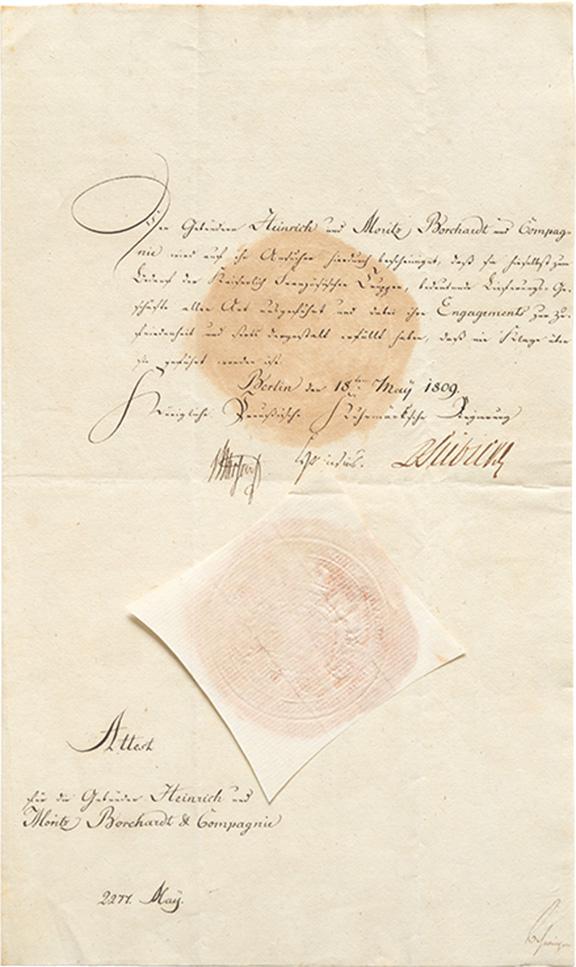 Den Gebrüdern Heinrich und Moritz Borchardt und Compag-
nie wird auf ihr Ansuchen hierdurch bescheiniget, daß sie hieselbst zum
Behuf der Kaiserlich Französischen Truppen, bedeutende Lieferungs-Ge-
schäfte aller Art ausgeführt und dabei ihre Engagements zur Zu-
friedenheit und stets dergestalt erfüllt haben, daß nie Klage über
sie geführt worden ist.
Berlin den 18ten May 1809.
Königliche Preußische Kuhrmärksche Regierung
Attest
für die Gebrüder Heinrich und
Moritz Borchardt & Compagnie
2277. May.